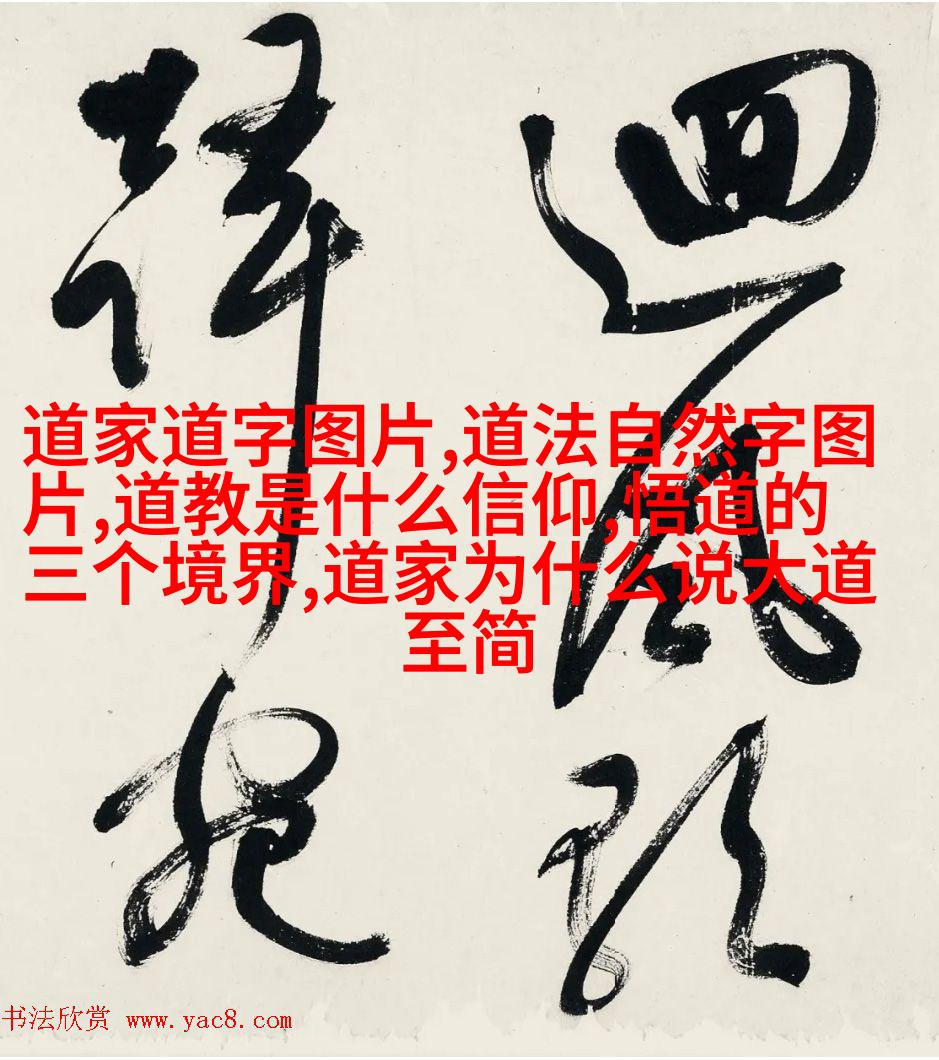 道家道字图片,道法自然字图
片,道教是什么信仰,悟道的
三个境界,道家为什么说大道
至简
迴風
书法欣赏 www.yac8.com